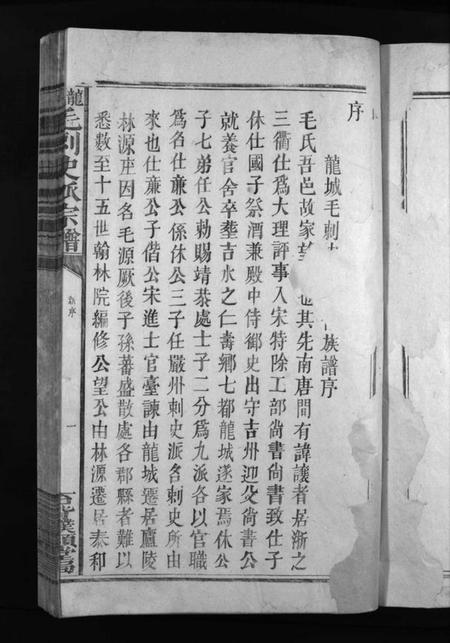 序
龍城毛刺
族譜序
毛氏吾邑故家望
也其先南唐間有諱讓者居浙之
三衢仕爲大理評事入宋特除工部尙書尙書致仕子
休仕國子祭酒兼殿中侍御史出守吉州迎父尙書公
就養官舍卒塟吉水之仁壽鄉七都龍城遂家焉休公
子七弟任公勅賜靖恭處士子二分爲九派各以官職
爲名仕蕙公係休公三子任嚴州刺史派名刺史所由
來也仕蕙公子偕公宋進士官臺諫由龍城遷居廬陵
林源庄因名毛源厥後子孫蕃盛散處各郡縣者難以
悉數至十五世翰林院編修公望公由林源遷居泰和
龍
毛刺史派宗譜
序
一